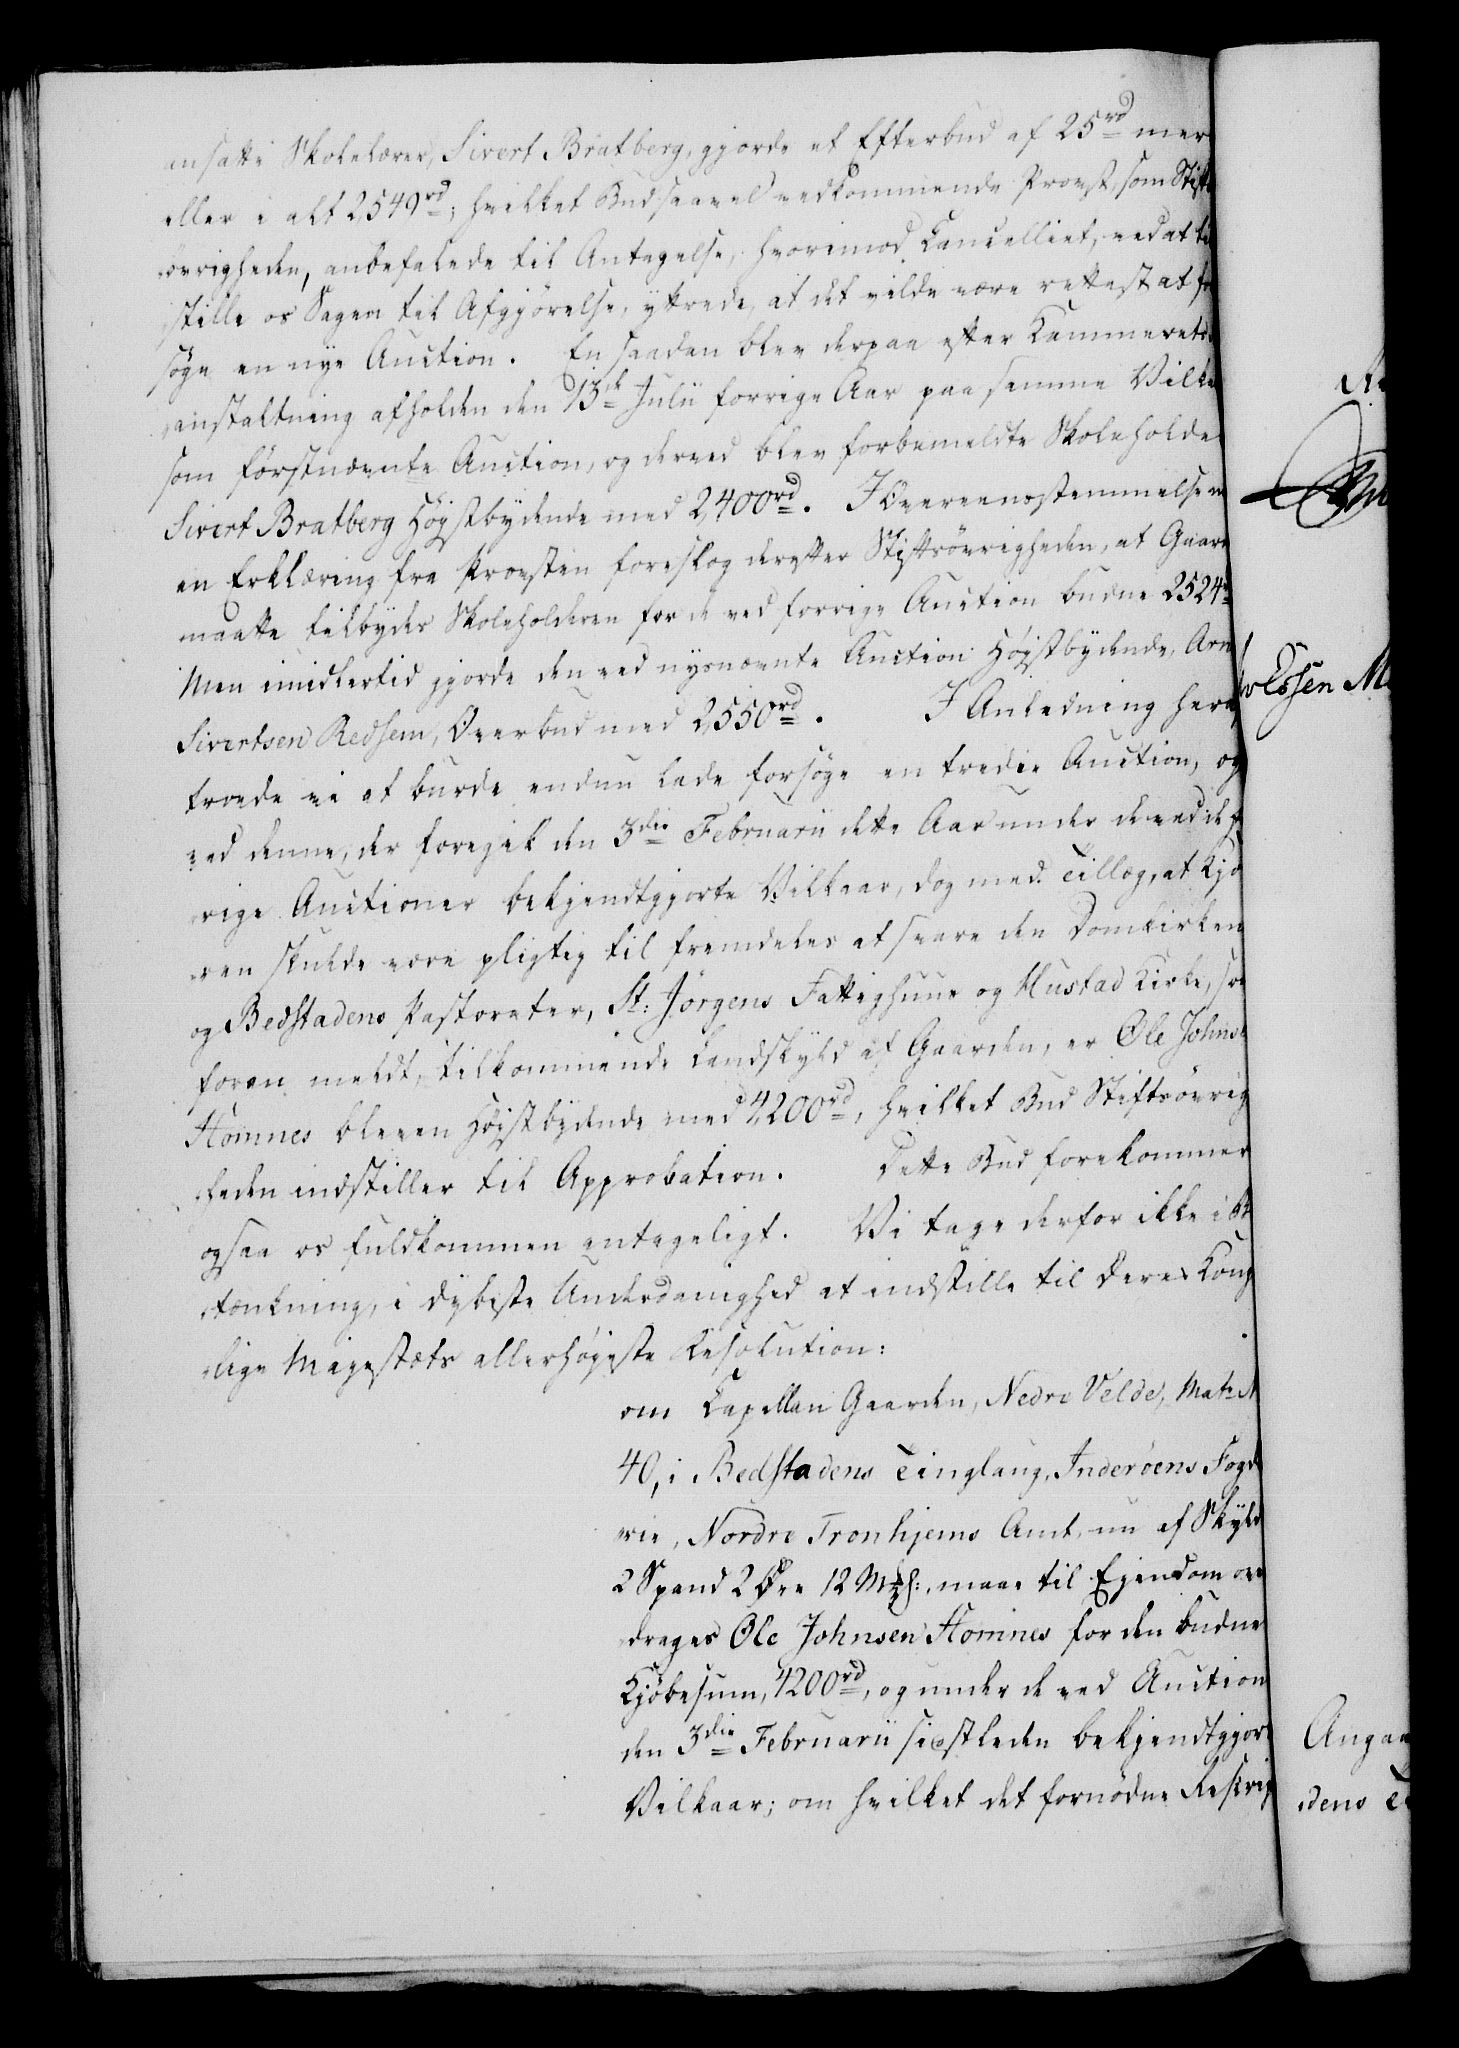 ansatte Skolelærer, Sivert Bratberg, gjorde et Efterbud af 25rd mer
eller i alt 2549rd; hvilket Bud saavel vedkommende Provst, som Stifts
øvrigheden, anbefalede til Antagelse, hvorimod Cancelliet, ved at til
stille os Sagen til Afgjørelse, yttrede, at det vilde være rettest at for
søge en nye Auction. En saadan blev derpaa efter Kammerets
anstaltning afholden den 13de Julii forrige Aar paa samme Vilka
som førstnævnte Auction, og derved blev forbemeldte Skoleholder
Sivert Bratberg Høystbydende med 2,400rd. I Overeensstemmelse m
en Erklæring fra Provsten foreslog derefter Stiftsøvrigheden, at Gaard
maatte tilbydes Skoleholderen for de ved forrige Auction budne 2524rd
Men imidlertid gjorde den ved nysnævnte Auction Høystbydende, Arn
Sivertsen Redsem, Overbud med 2,550rd. I Anledning heraf
troede vi at burde endnu lade forsøge en tredie Auction, og
ved denne, der foregik den 3die Februarii dette Aar under de ved de fo
rige Auctioner bekjendtgjorte Vilkaar, dog med Tillæg, at Kjø
eren skulde være pligtig til fremdeles at svare den Domkirken
og Bedstadens Pastorater, St: Jörgens Fattighuus og Hustad Kirke, som
foran meldt, tilkommende Landskyld af Gaarden, er Ole Johns
Homnes bleven Høystbydende med 4,200rd, hvilket Bud Stiftsøvrig
heden indstiller til Approbation. Dette Bud forekommer
ogsaa os fuldkommen antageligt. Vi tage derfor ikke i Be
tænkning, i dybeste Underdanighed at indstille til Deres Konge
lige Majestæts allerhøyeste Resolution:
om Capellan Gaarden, Nedre Velde, Matr. N
40, i Bedstadens Tinglaug, Inderöens Fogde
rie, Nordre Tronhjems Amt, nu af Skyld
2 Spand 2 Øre 12 Mkl:, maae til Ejendom over
drages Ole Johnsen Homnes for den budne
Kjøbesum, 4200rd, og under de ved Auction
den 3die Februarii sidstleden bekjendtgjor
Vilkaar; om hvilket det fornødne Rescrip
Essen M
Angaa
dens T